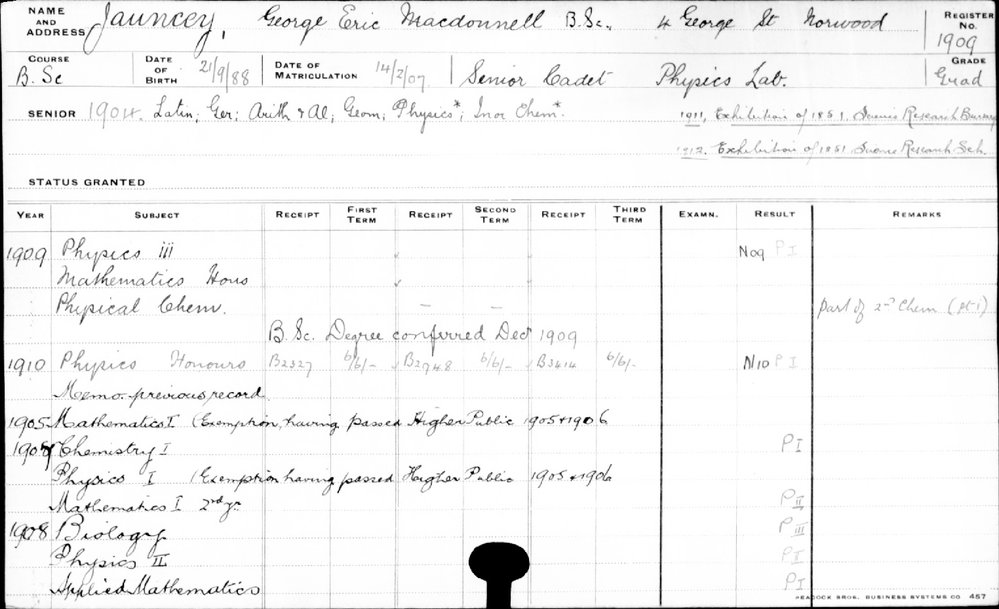 NAME AND ADDRESS Jauncey, George Eric Macdonnell B.Sc., 4 George St Norwood REGISTER No. 1909
COURSE B.Sc DATE OF BIRTH 21/9/88 DATE OF MATRICULATION 14/2/07 Senior Cadet Physics Lab. GRADE Grad
SENIOR 1904. Latin; Ger; Arith & Al; Geom; Physics*; Inor Chem.* 1911, Exhibition of 1851. Science Research Bursary
1912. Exhibition of 1851 Science Research Sch.
STATUS GRANTED
YEAR SUBJECT RECEIPT FIRST TERM RECEIPT SECOND TERM RECEIPT THIRD TERM EXAMN. RESULT REMARKS
1909 Physics iii Nog P I
Mathematics Hons
Physical Chem. – – Part of 2nd Chem (Pt-1)
B.Sc. Degree conferred Decr 1909
1910 Physics Honours B2327 6/6/- B2948 6/6/- B3414 6/6/- N10 P I
Memo. previous record.
1905 Mathematics I (Exemption, having passed Higher Public 1905 & 1906
Chemistry I P I
Physics I (Exemption having passed Higher Public 1905 & 1906
Mathematics I 2nd yr P II
1908 Biology P III
Physics II P I
Applied Mathematics P I
PEACOCK BROS. BUSINESS SYSTEMS CO 457